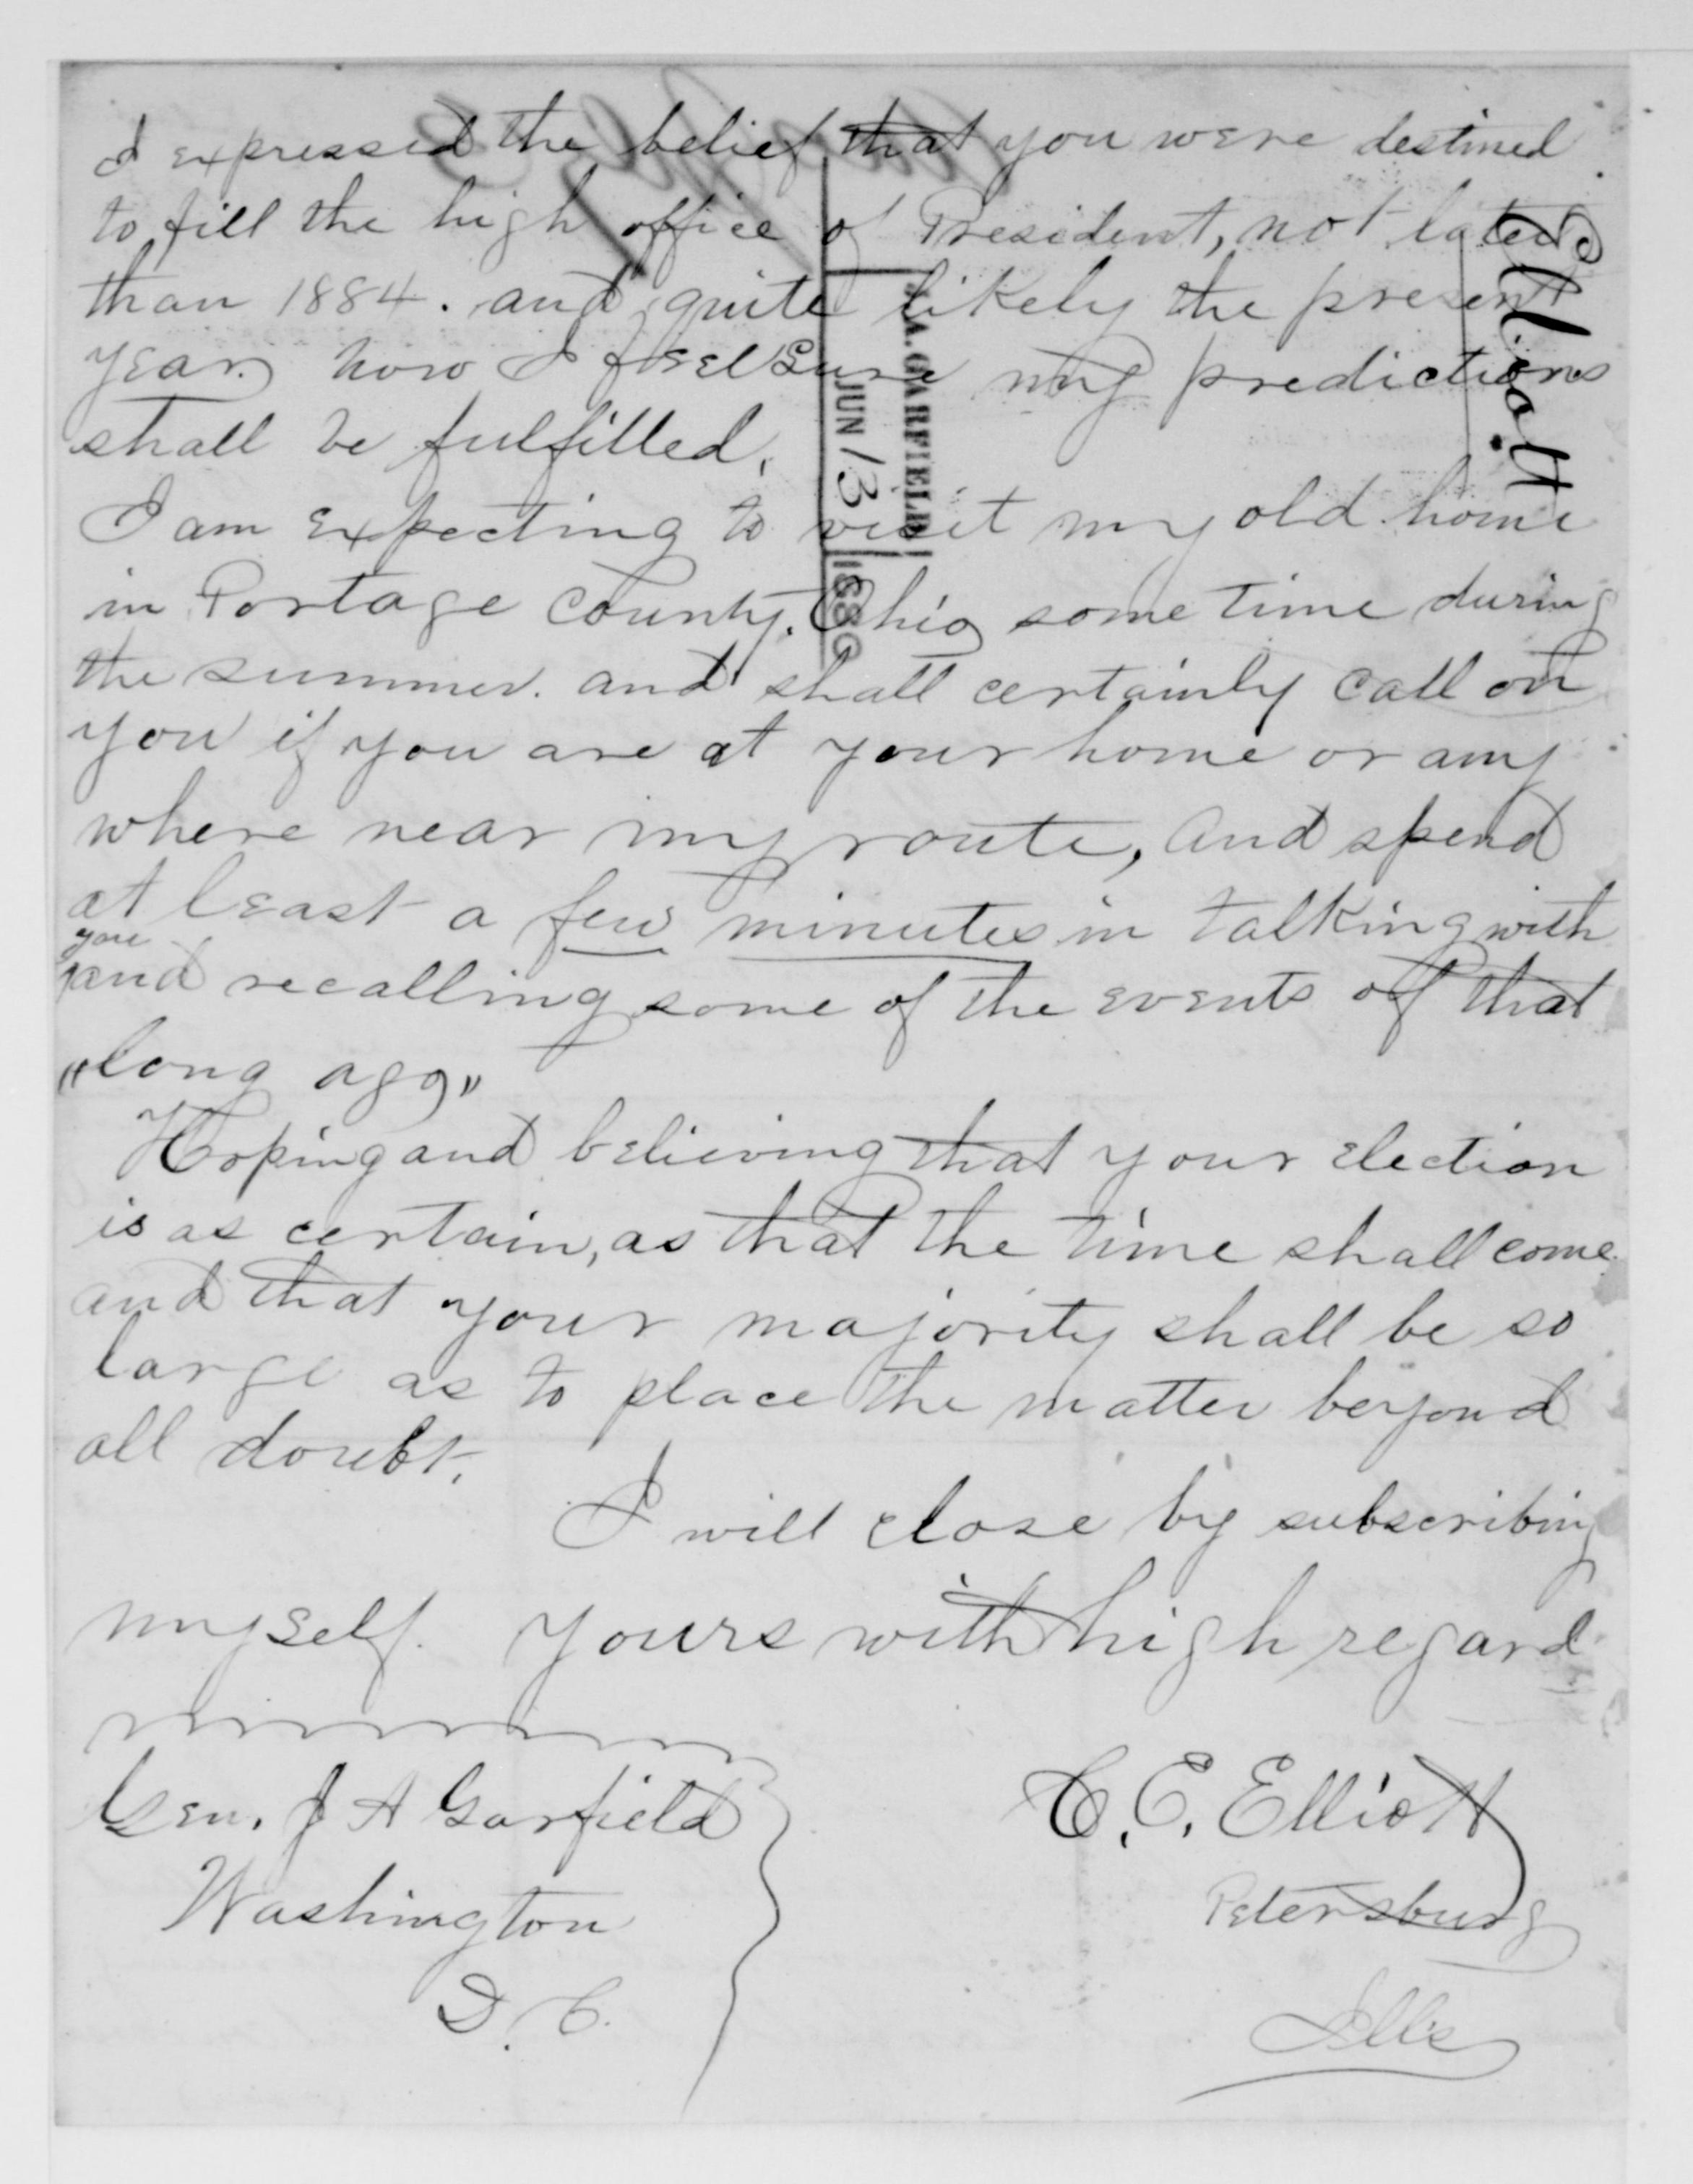 I expressed the belief that you were destined
to fill the high office of President, not later
than 1884. and quite likely the present
year. now I feel Sure my predictions
shall be fulfilled.
I am expecting to visit my old home
in Portage County. Ohio some time during
the summer. and shall certainly call on
you if you are at your home or any
where near my route, and spend
at least a few minutes in talking with
you
and recalling some of the events of that
"long ago"
Hoping and believing that your election
is as certain, as that the time shall come
and that your majority shall be so
large as to place the matter beyond
all doubt.
I will close by subscribing
myself. yours with high regard
Gen. J A Garfield
Washington
D. C.
C. E. Elliott
Petersburg
Ills
J. A. GARFIELD
JUN 13 1880
Elliott